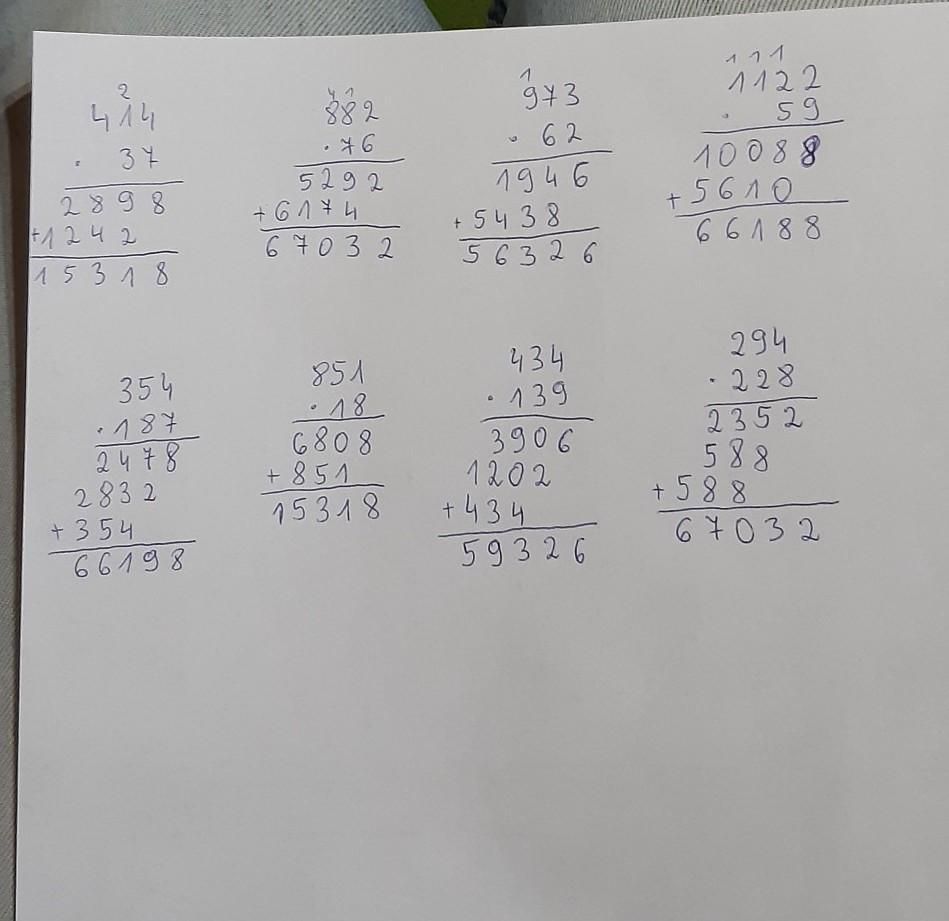 2
414
. 37
2898
+1242
15318
4 1
882
.76
5292
+6174
67032
1
973
. 62
1946
+5438
56326
1 1 1
1122
. 59
10088
+5610
66188
354
.187
2478
2832
+354
66198
851
.18
6808
+851
15318
434
.139
3906
1202
+434
59326
294
.228
2352
588
+588
67032